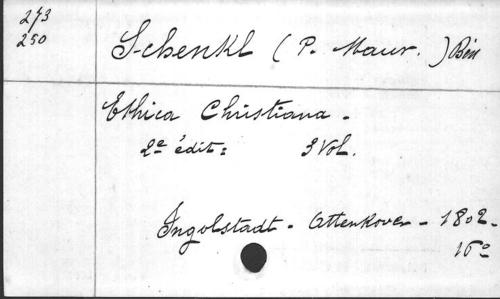 273
250
Schenkl (P. Maur.) Bén
Ethica Christiana.
2e édit: 3 Vol.
Ingolstadt. Attenkover - 1802.
16°